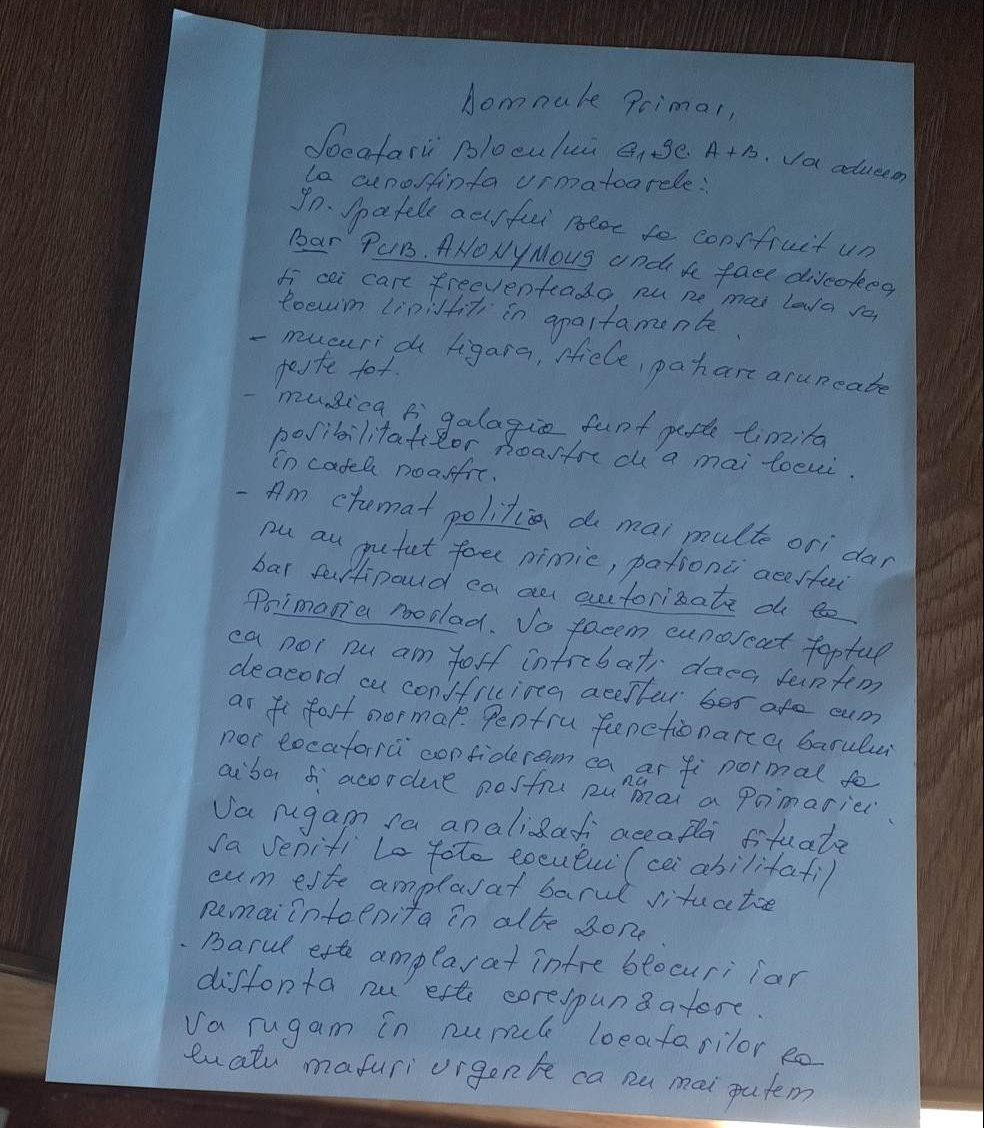 Domnule Primar,
Locatarii Blocului G1, Sc. A+B. Va aducem
la cunostinta urmatoarele:
In. spatele acestui bloc sa construit un
Bar PUB. ANONYMOUS unde se face discoteca
si cei care frecventeaza nu ne mai lasa sa
locuim linistiti in apartamente
- mucuri de tigara, sticle, pahare aruncate
peste tot.
- muzica si galagia sunt peste limita
posibilitatilor noastre de a mai locui.
in casele noastre.
- Am chemat politia de mai multe ori dar
nu au putut face nimic, patronii acestui
bar sustinand ca au autorizatie de la
Primaria Barlad. Va facem cunoscut faptul
ca noi nu am fost intrebati daca suntem
deacord cu construirea acestui bar asa cum
ar fi fost normal. Pentru functionarea barului
noi locatarii consideram ca ar fi normal sa
aiba si acordul nostru nu numai a Primariei.
Va rugam sa analizati această situatie
sa veniti la fata locului (cei abilitati)
cum este amplasat barul situatie
nemaiîntalnita în alte zone.
. Barul este amplasat între blocuri iar
distanta nu este corespunzatore.
Va rugam în numele locatarilor sa
luati masuri urgente ca nu mai putem